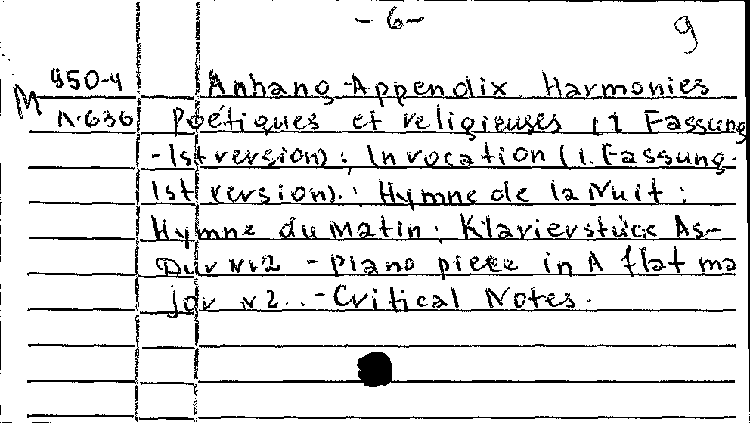 -6-
9
950-4
M Anhang-Appendix Harmonies
Л-636 Poétiques et religieuses (1 Fassung
-1st version): Invocation (1. Fassung-
1st version).: Hymne de la Nuit:
Hymne du Matin: Klavierstück As-
Dur Nr2 - Piano piece in A flat ma
jor N2..-Critical Notes.